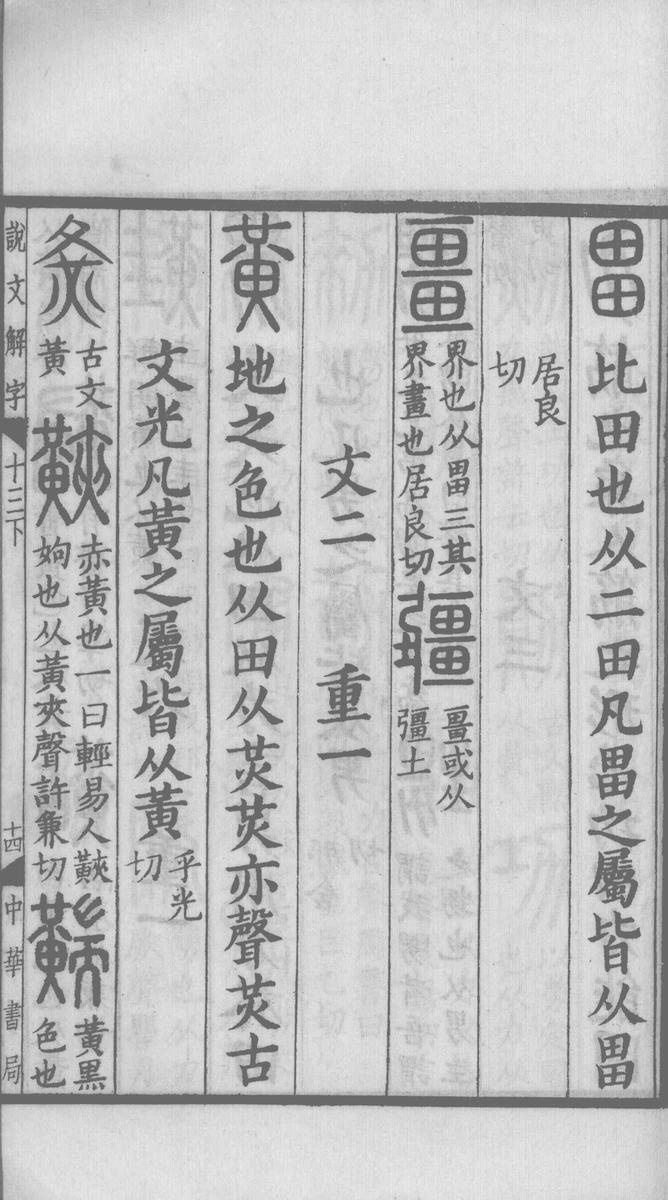 畕 比田也从二田凡畕之屬皆从畕
居良切
畺 界也从畕三其界畫也居良切 疆 畺或从彊土
文二 重一
黃 地之色也从田从炗炗亦聲炗古
文光凡黃之屬皆从黃 乎光切
古文黃 㶰 赤黃也一曰輕易人㶰姁也从黃夾聲許兼切 黑黃色也
說文解字 十三下 十四 中華書局